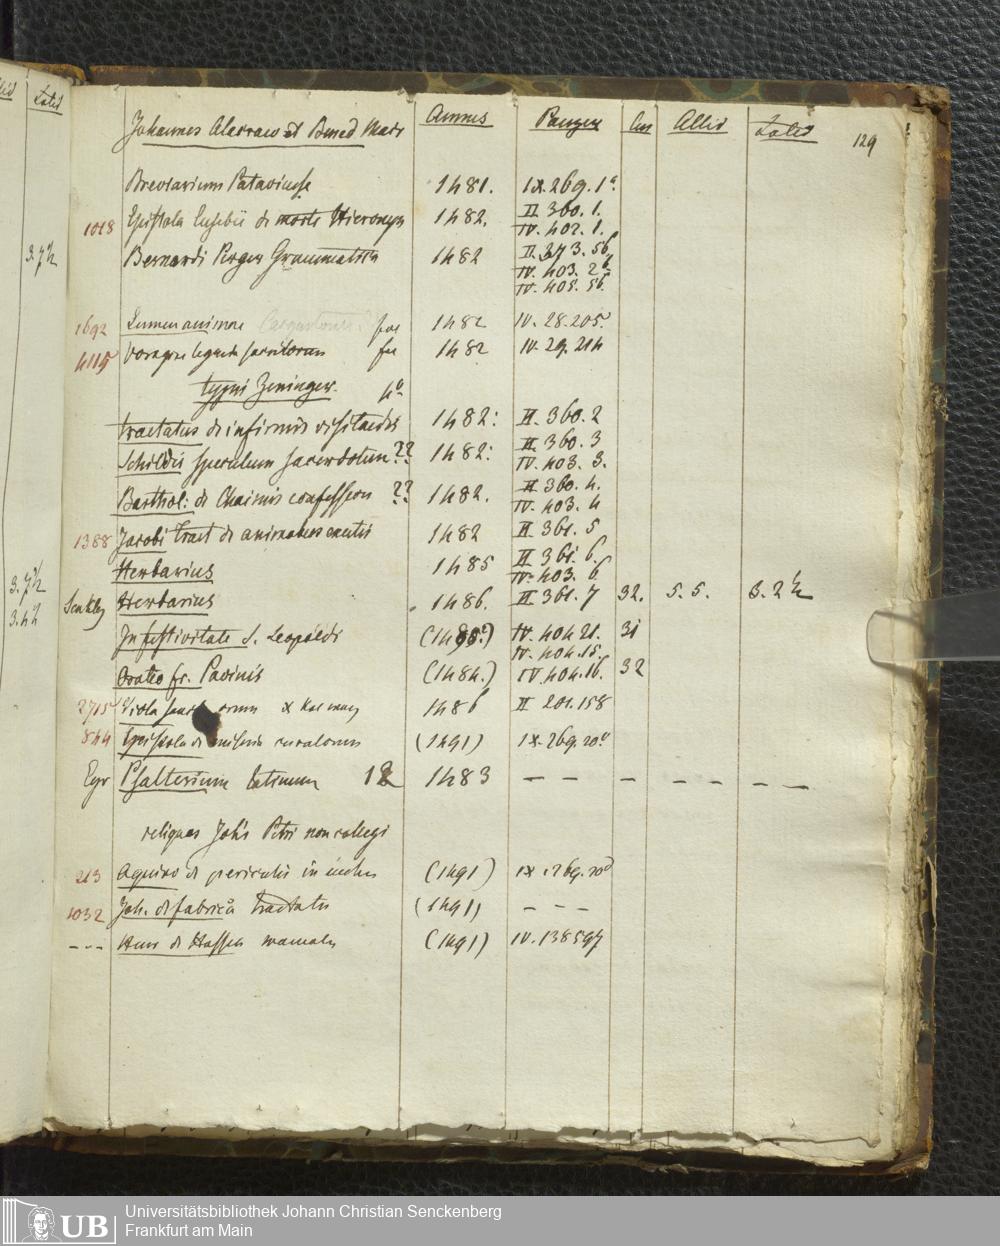 Johannes Alacraw et Bened Mair Annus Panzer Lin Altid Latid 129
Breviarium Pataviense 1481. IX. 269. 1ª
1018 Epistola Eusebii de morte Hieronym 1482. II. 360. 1.
IV. 402. 1.
3. 7½ Bernardi Perger Grammatica 1482 II. 373. 56
IV. 403. 2
IV. 405. 56
1692 Lumen animae 1482 IV. 28. 205.
4115 Voragine legenda sanctorum 1482 IV. 29. 214
typis Zeninger.
tractatus de infirmis visitandis 1482: II. 360. 2
Schildis speculum sacerdotum ?? 1482: II. 360. 3
IV. 403. 3.
Barthol: de Chaimis confession ?? 1482. II. 360. 4.
IV. 403. 4
1388 Jacobi tract de animabus exutis 1482 II. 361. 5
3. 7½ Herbarius 1485 II. 361. 6.
IV. 403. 6
3. 4½ Herbarius 1486. II 361. 7 32. 5. 5. 3. 2½
In festivitate S. Leopoldi IV. 404 21. 31
IV. 404. 15.
Oratio fr. Pavinis (1484.) IV. 404. 16. 32
2715 Viola sanctorum 1486 II 201. 158
844 Epistola de miseria curatorum (1491) IX. 269. 20
Eyr Psalterium latinum 12 1483 — — — — — — —
reliquas Joh's Petri non collegi
213 Aquino de periculis in (1491) IX. 269. 20
1032 Joh. de fabrica tractatus (1491) — — —
--- de Hassia (1491) IV. 138 597
UB Universitätsbibliothek Johann Christian Senckenberg
Frankfurt am Main